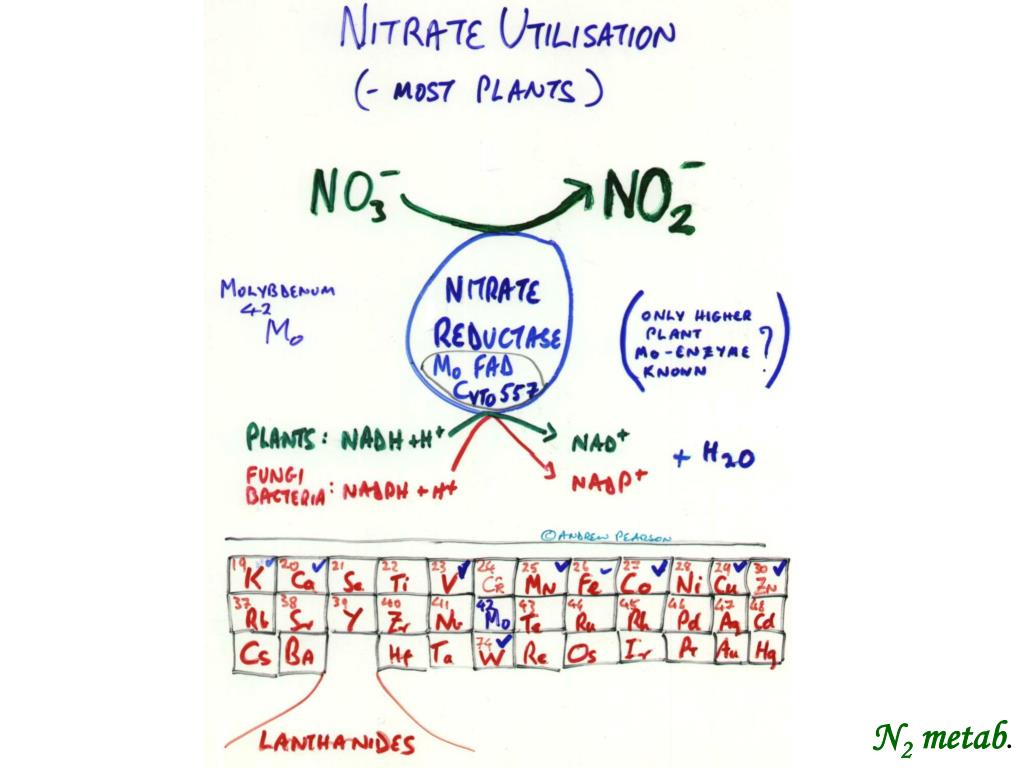 NITRATE UTILISATION
(- MOST PLANTS)
NO3- NO2-
MOLYBDENUM
42
Mo
NITRATE
REDUCTASE
Mo FAD
CYTO 557
(ONLY HIGHER
PLANT
MO-ENZYME
KNOWN ?)
PLANTS: NADH + H+ NAD+
+ H2O
FUNGI
BACTERIA: NADPH + H+ NADP+
© ANDREW PEARSON
19 K 20 Ca 21 Sc 22 Ti 23 V 24 CR 25 MN 26 Fe 27 Co 28 Ni 29 Cu 30 ZN
37 Rb 38 Sr 39 Y 40 Zr 41 Nb 42 Mo 43 Tc 44 Ru 45 Rh 46 Pd 47 Ag 48 Cd
Cs BA Hf Ta 74 W Re Os Ir Pt Au Hg
LANTHANIDES
N2 metab.